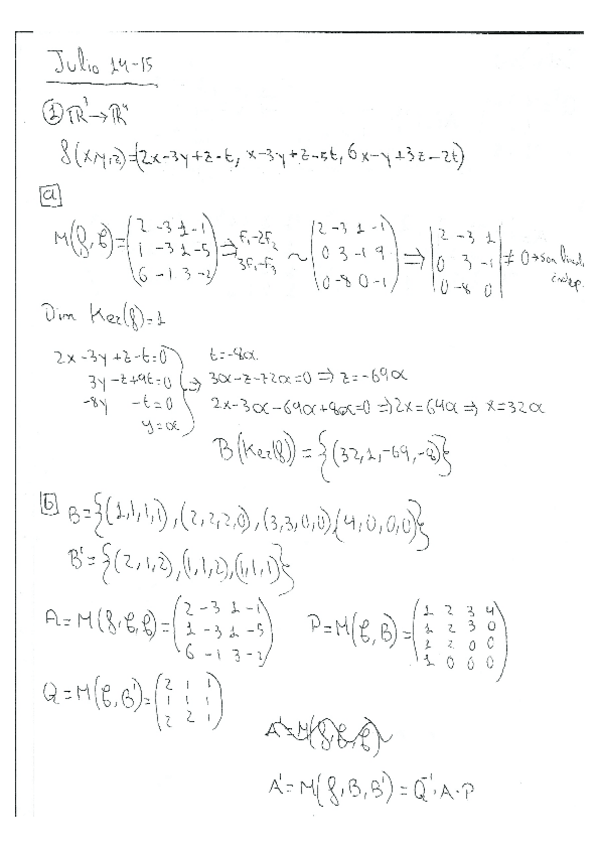 Julio 14-15
① ℝ³→ℝ⁴
f(x,y,z)=(2x-3y+z-t, x-3y+z-5t, 6x-y+3z-2t)
a
M(f,ℓ)=(2 -3 1 -1 / 1 -3 1 -5 / 6 -1 3 -2) ⇒ F₁-2F₂ 3F₁-F₃ ~ (2 -3 1 -1 / 0 3 -1 9 / 0 -8 0 -1) ⇒ |2 -3 1 / 0 3 -1 / 0 -8 0| ≠ 0 → son lin. indep.
Dim Ker(f)=1
2x-3y+z-t=0 t=-8α.
3y-z+9t=0 ⇒ 3α-z-72α=0 ⇒ z=-69α
-8y -t=0 2x-3α-69α+8α=0 ⇒ 2x=64α ⇒ x=32α
y=α
B(Ker(f))={(32,1,-69,-8)}
b B={(1,1,1,1),(2,2,2,0),(3,3,0,0),(4,0,0,0)}
B'={(2,1,2),(1,1,2),(1,1,1)}
A=M(f,ℓ,ℓ)=(2 -3 1 -1 / 1 -3 1 -5 / 6 -1 3 -2) P=M(ℓ,B)=(1 2 3 4 / 1 2 3 0 / 1 2 0 0 / 1 0 0 0)
Q=M(ℓ,B')=(2 1 1 / 1 1 1 / 2 2 1)
A'=M(f,ℓ,ℓ)
A'=M(f,B,B')=Q⁻¹·A·P